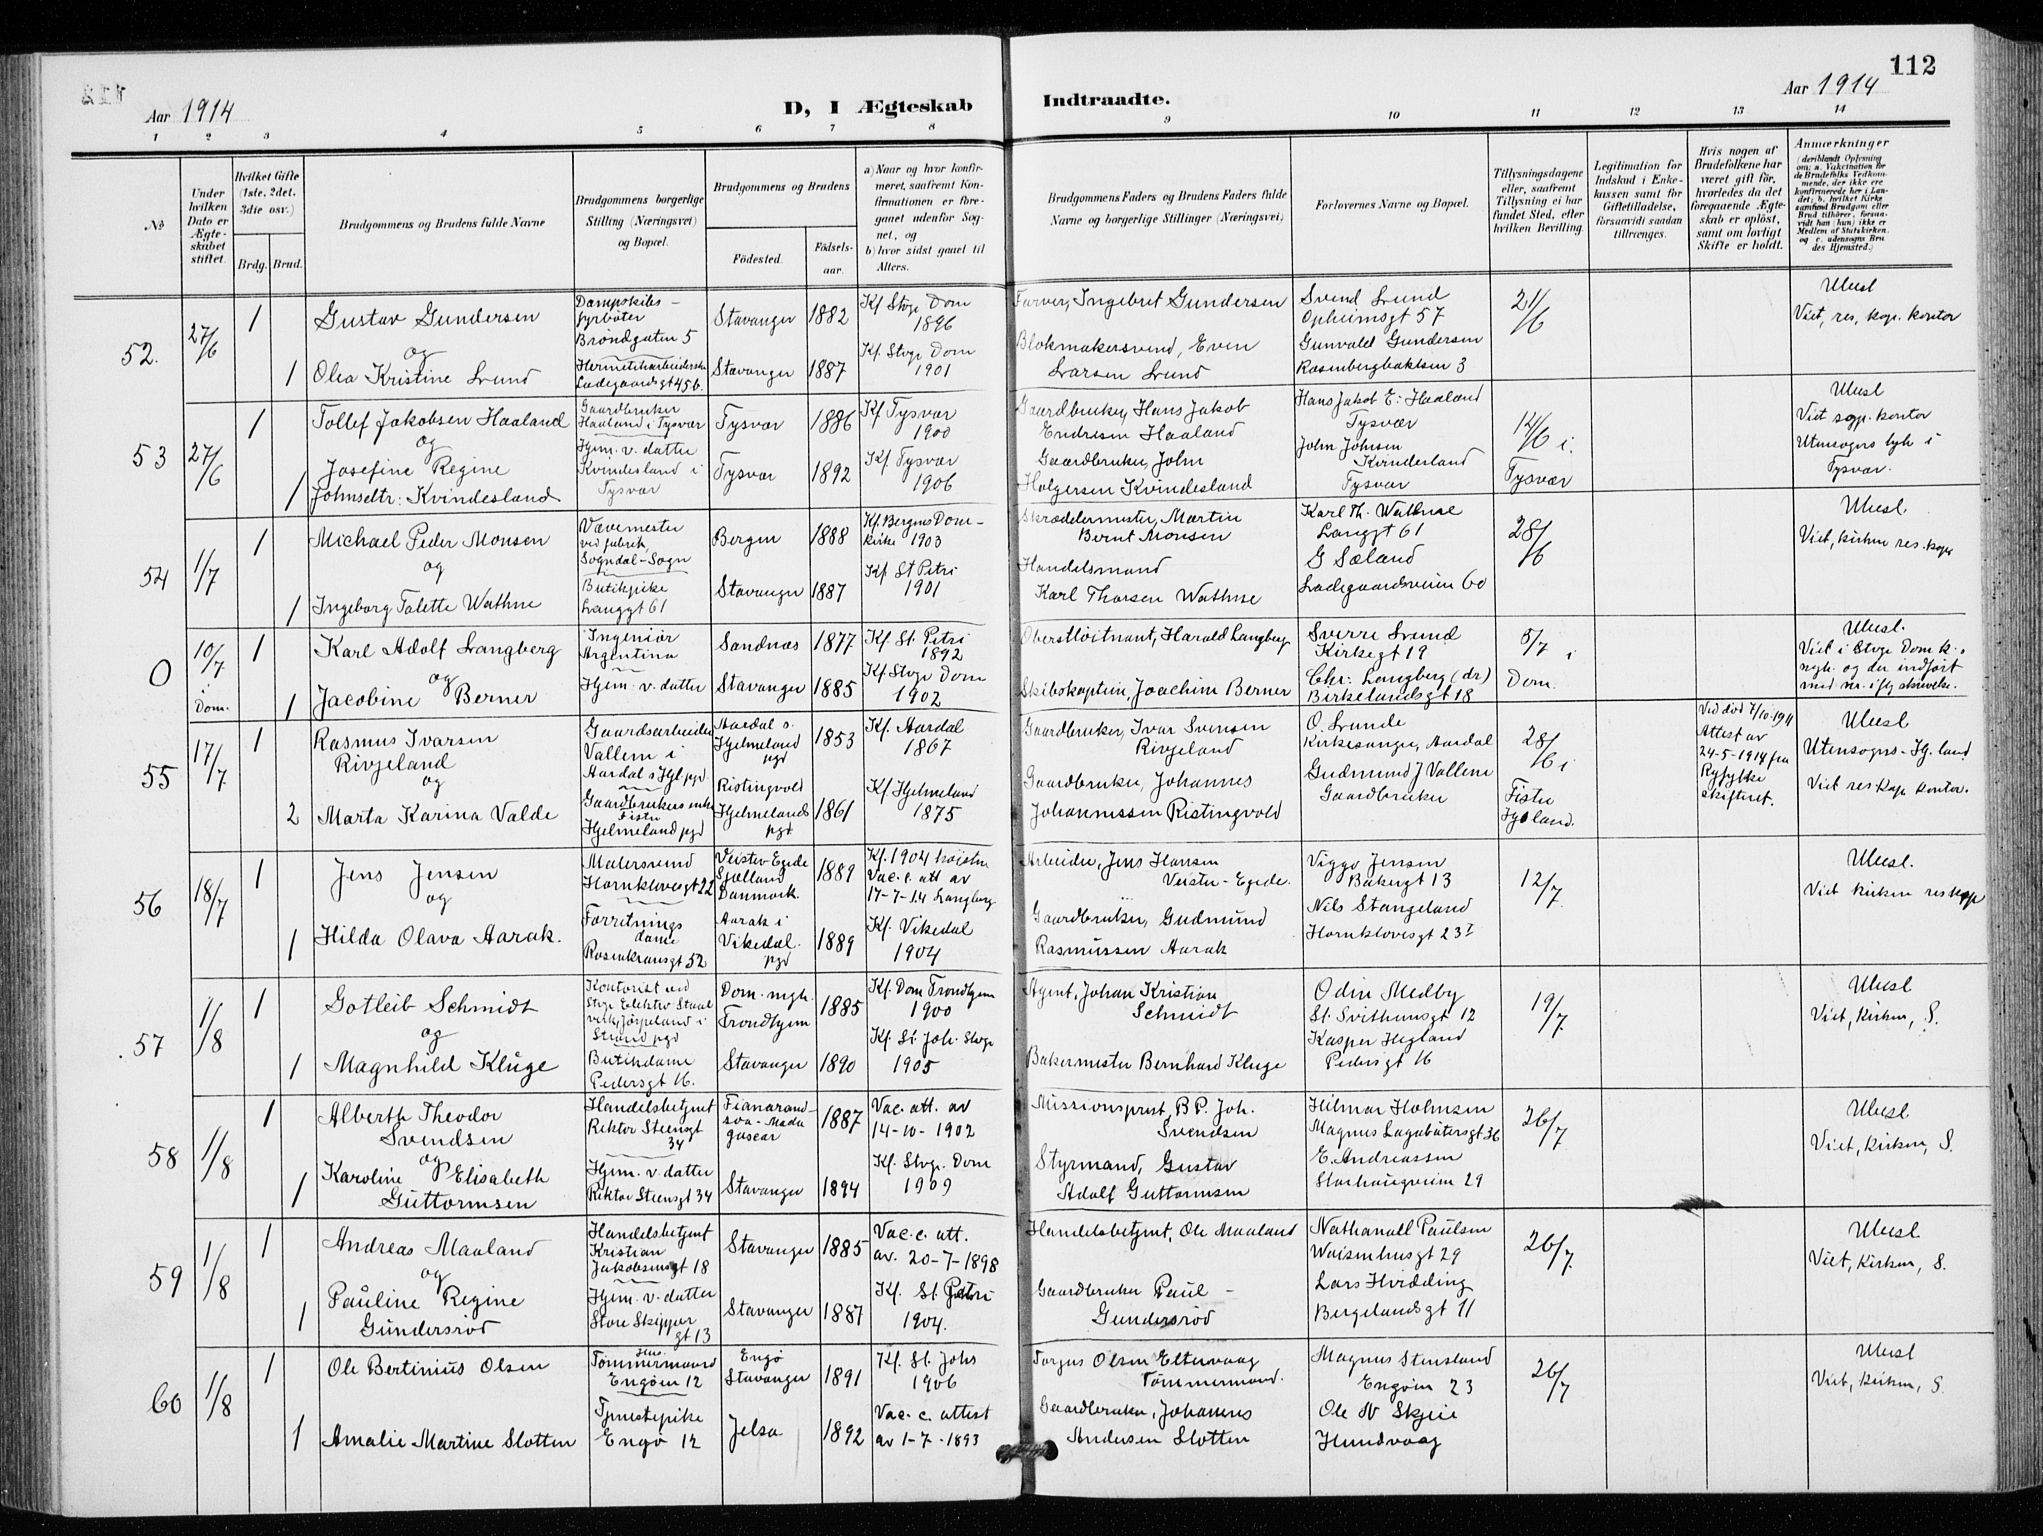 112
Aar 1914
D, I Ægteskab Indtraadte.
Aar 1914
1 2 3 4 5 6 7 8 9 10 11 12 13 14
No
Under hvilken Dato er Ægteskabet stiftet.
Hvilket Gifte (1ste, 2det, 3die osv.)
Brdg. Brud.
Brudgommens og Brudens fulde Navne
Brudgommens borgerlige Stilling (Næringsvei) og Bopæl.
Brudgommens og Brudens
Födested. Födselsaar.
a) Naar og hvor konfirmeret, saafremt Konfirmationen er foreganet udenfor Sognet, og
b) hvor sidst gaaet til Alters.
Brudgommens Faders og Brudens Faders fulde Navne og borgerlige Stillinger (Næringsvei)
Forlovernes Navne og Bopæl.
Tillysningsdagene eller, saafremt Tillysning ei har fundet Sted, efter hvilken Bevilling.
Legitimation for Indskud i Enkekassen samt for Giftetilladelse, forsaavidt saadan tiltrænges.
Hvis nogen af Brudefolkene har været gift för, hvorledes da det foregaaende Ægteskab er oplöst, samt om lovligt Skifte er holdt.
Anmærkninger
(deriblandt Oplysning om: a. Vakcination for de Brudefolks Vedkommende, der ikke ere konfirmerede her i Landet; b. hvilket Kirkesamfund Brudgom eller Brud tilhörer, forsaavidt han (hun) ikke er Medlem af Statskirken, og c. udensogns Brudes Hjemsted.)
52. 27/6 1 Gustav Gundersen Dampskibsfyrbøter Brøndgaten 5 Stavanger 1882 Kf Stvgr Dom 1896 Farver, Ingebret Gundersen Svend Lund Opheimsgt 57 21/6 Viet, res. kap. kontor
og
1 Olea Kristine Lund Ladegaardsgt 45b. Stavanger 1887 Kf. Stvgr Dom 1901 Blokmakersvend, Even Larsen Lund Gunvald Gundersen Rosenbergbakken 3
53 27/6 1 Tollef Jakobsen Haaland Gaardbruker Haaland i Tysvær Tysvær 1886 Kf Tysvær 1900 Gaardbruker, Hans Jakob Endresen Haaland Hans Jakob E. Haaland Tysvær 14/6 i Tysvær Viet sgp. kontor Utensogns i Tysvær.
og
1 Josefine Regine Johnsdtr: Kvindesland Hjem. v. datter Kvindesland i Tysvær Tysvær 1892 Kf Tysvær 1906 Gaardbruker, John Holgersen Kvindesland John Johnsen Kvindesland Tysvær
54 1/7 1 Michael Peder Monsen Vævemester ved fabrik, Sogndal-Sogn Bergen 1888 Kf. Bergens Domkirke 1903 Skræddermester, Martin Bernt Monsen Karl Th. Wathne Langgt 61 28/6 Viet, kirken res. kap.
og
1 Ingeborg Talette Wathne Butikpike Langgt 61 Stavanger 1887 Kf St Petri 1901 Handelsmand Karl Thorsen Wathne G Sæland Ladegaardsveien 60
0 10/7 i Dom. 1 Karl Adolf Langberg Ingeniør Argentina Sandnæs 1877 Kf. St. Petri 1892 Oberstløitnant, Harald Langberg Sverre Lund Kirkegt 19 5/7 i Dom. Viet i Stvgr Domk. og der indført
og
1 Jacobine Berner Hjem. v. datter Stavanger 1885 Kf Stvgr Dom 1902 Skibskaptein, Joachim Berner Chr: Langberg (dr) Birkelandsgt 18
55 17/7 1 Rasmus Ivarsen Rivjeland Gaardsarbeider Vallem i Aardal s Hjl pgd Aardal s. Hjelmeland pgd 1853 Kf. Aardal 1867 Gaardbruker, Ivar Svensen Rivjeland O. Lunde Kirkesanger, Aardal 28/6 i Fister Hjelmeland. Ved død 7/10-1911 Attest av 24-5-1914 fra Ryfylke skifteret. Utensogns-Hj.land Viet res kap kontor.
og
2 Marta Karina Valde Gaardbrukers enke Fister Hjelmeland pgd Ristingvold Hjelmelands pgd 1861 Kf Hjelmeland 1875 Gaardbruker, Johannes Johannessen Ristingvold Gudmund J Vallem Gaardbruker
56 18/7 1 Jens Jensen Malersvend Hornklovesgt 22 Veister-Egede Sjælland Danmark. 1889 Kf. 1904 Vac. c. att av 17-7-14 Langberg Arbeider, Jens Hansen Veister-Egede. Viggo Jensen Bakergt 13 12/7 Viet kirken res kap
og
1 Hilda Olava Aarak. Forretningsdame Rosenkransgt 52 Aarak i Vikedal pgd 1889 Kf. Vikedal 1904 Gaardbruker, Gudmund Rasmussen Aarak Nils Stangeland Hornklovesgt 23 I
57 1/8 1 Gotleib Schmidt Kontorist ved Stvgr Elektr. Staalverk, Jørpeland i Strand pgd Dom. mgh. Trondhjem 1885 Kf. Dom Trondhjem 1900 Agent, Johan Kristian Schmidt Odin Medby St. Svithunsgt 12 19/7 Viet, kirken, S.
og
1 Magnhild Kluge Butikdame Pedersgt 16. Stavanger 1890 Kf. St. Joh. Stvgr 1905 Bakermester Bernhard Kluge Kasper Høgland Pedersgt 16
58 1/8 1 Alberth Theodor Svendsen Handelsbetjent Rektor Steensgt 34 Fianarandsva-Madagascar 1887 Vac. att. av 14-10-1902 Missionsprest, B P. Joh. Svendsen Hilmar Holmsen Magnus Lagabøtersgt 36 26/7 Viet, kirken, S.
og
1 Karoline Elisabeth Guttormsen Hjem. v. datter Rektor Steensgt 34 Stavanger 1894 Kf. Stvgr. Dom 1909 Styrmand, Gustav Adolf Guttormsen E. Andreassen Storhaugveien 29
59 1/8 1 Andreas Maaland Handelsbetjent Kristian Jakobsensgt 18 Stavanger 1885 Vac. c. att. av. 20-7-1898 Handelsbetjent, Ole Maaland Nathanael Paulsen Waisenhusgt 29 26/7. Viet, kirken, S.
og
1 Pauline Regine Gundersrød Hjem. v. datter Store Skippergt 13 Stavanger 1887 Kf. St. Petri 1904. Gaardbruker Paul Gundersrød Lars Hvidding Bergelandsgt 11
60 1/8 1 Ole Bertinius Olsen Tømmermand Engøen 12 Engø Stavanger 1891 Kf. St. Johs 1906 Torgus Olsen Eltervaag Tømmermand. Magnus Stensland Engøen 23 26/7 Viet, kirken, S.
1 Amalie Martine Slotten Tjenestepike Engø 12 Jelsa 1892 Vac. c. attest av 1-7-1893 Gaardbruker, Johannes Andersen Slotten Ole N Skjeie Hundvaag